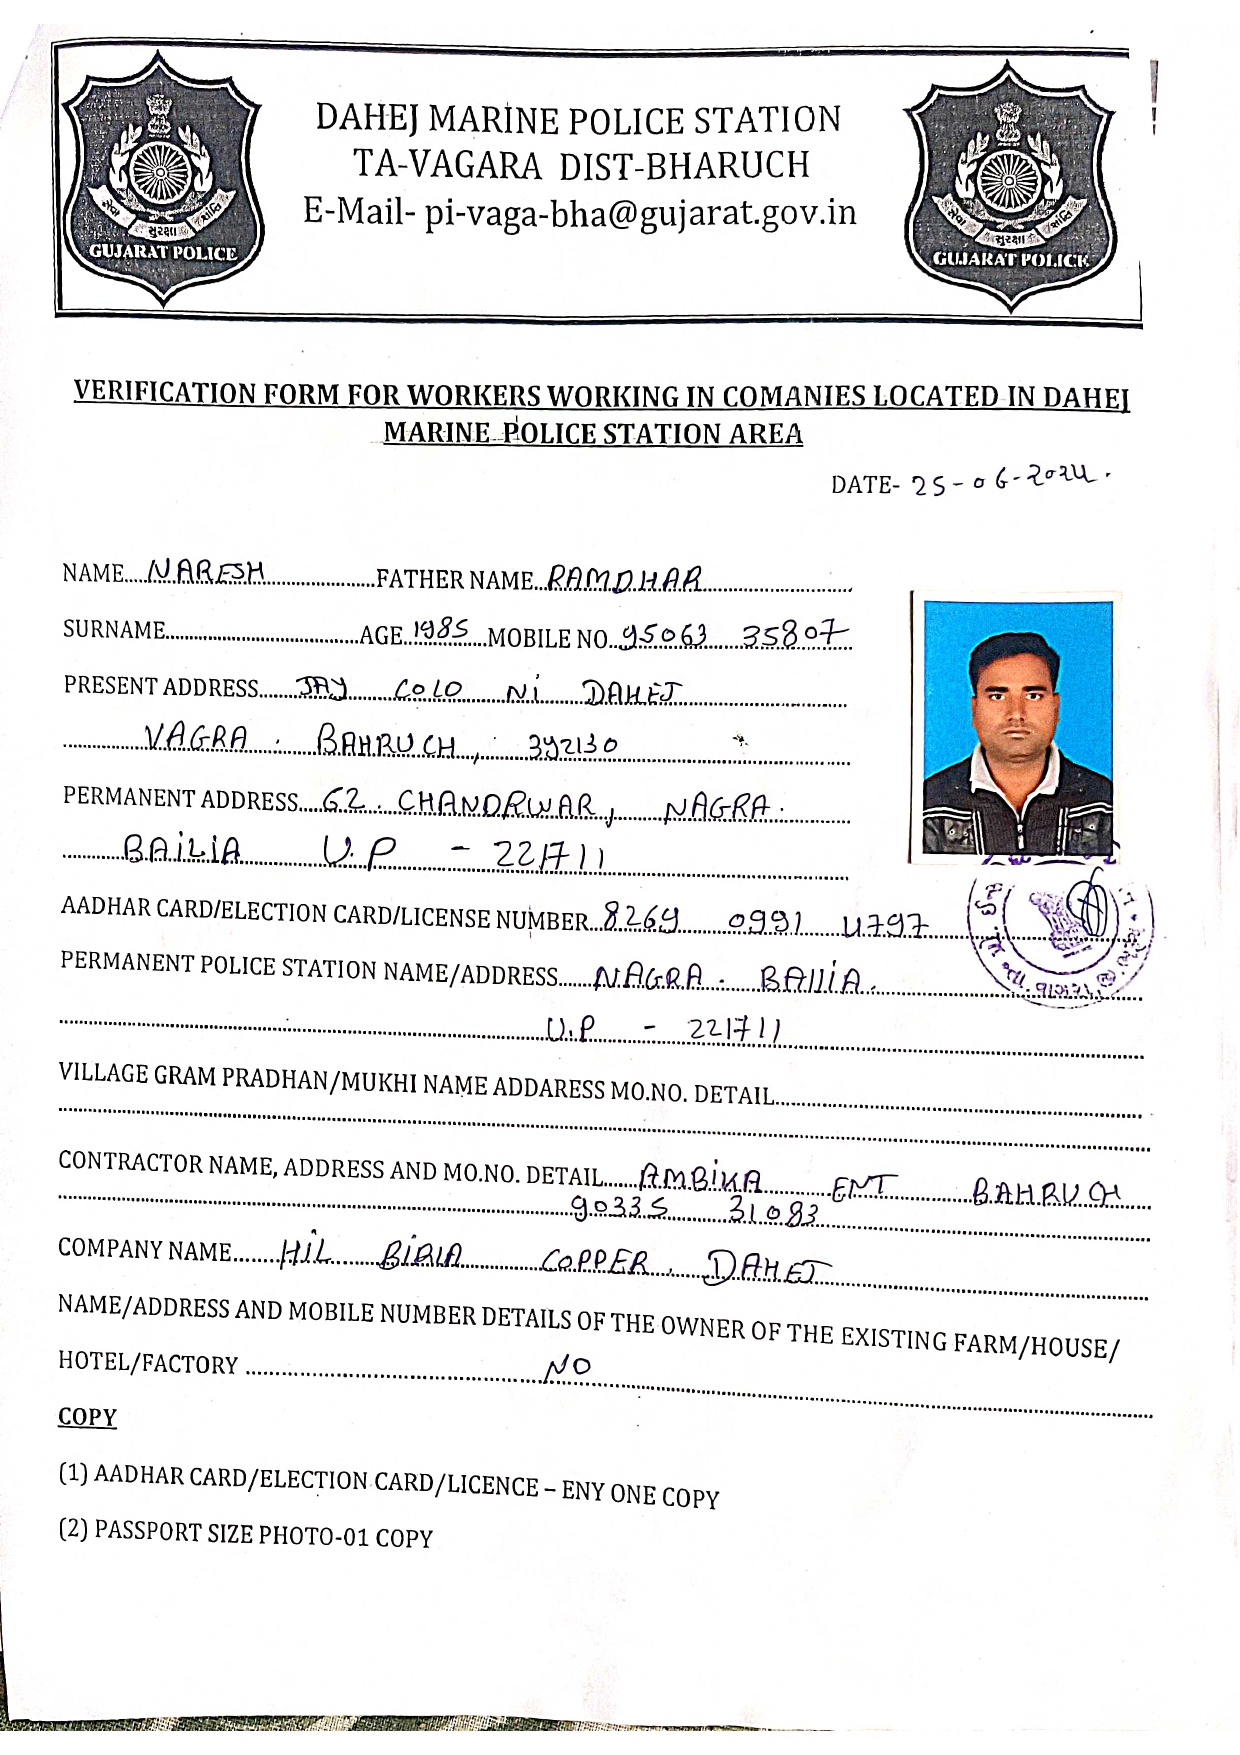 DAHEJ MARINE POLICE STATION
TA-VAGARA DIST-BHARUCH
E-Mail- pi-vaga-bha@gujarat.gov.in
સેવા સુરક્ષા શાંતિ
GUJARAT POLICE
સેવા સુરક્ષા શાંતિ
GUJARAT POLICE
VERIFICATION FORM FOR WORKERS WORKING IN COMANIES LOCATED IN DAHEJ
MARINE POLICE STATION AREA
DATE- 25-06-2024.
NAME....NARESH....................FATHER NAME..RAMDHAR.............................
SURNAME.......................................AGE..1985...MOBILE NO..95063 35807
PRESENT ADDRESS.......JAY COLO Ni DAHEJ
VAGRA . BAHRUCH, 392130
PERMANENT ADDRESS....62. CHANDRWAR, NAGRA.
BAILIA U.P - 221711
AADHAR CARD/ELECTION CARD/LICENSE NUMBER..8269 0991 4797
PERMANENT POLICE STATION NAME/ADDRESS......NAGRA. BAllIA.
U.P - 221711
VILLAGE GRAM PRADHAN/MUKHI NAME ADDARESS MO.NO. DETAIL..........................
CONTRACTOR NAME, ADDRESS AND MO.NO. DETAIL.....AMBIKA ENT BAHRUCH
90335 31083
COMPANY NAME.......HIL BIRlA COPPER. DAHEJ
NAME/ADDRESS AND MOBILE NUMBER DETAILS OF THE OWNER OF THE EXISTING FARM/HOUSE/
HOTEL/FACTORY .......... NO
COPY
(1) AADHAR CARD/ELECTION CARD/LICENCE – ENY ONE COPY
(2) PASSPORT SIZE PHOTO-01 COPY